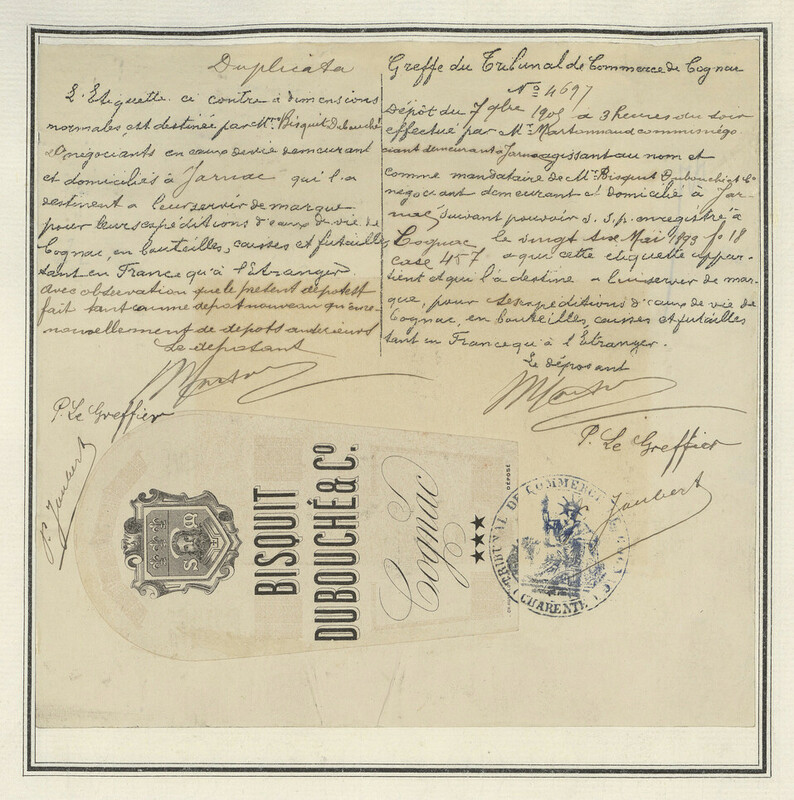 Duplicata
L'Etiquette ci contre à dimensions
normales est destinée par Mrs Bisquit Dubouché
& Co négociants en eaux de vie demeurant
et domiciliés à Jarnac qui l'a
destinent a leur servir de marque
pour leurs expéditions d'eaux de vie de
Cognac, en bouteilles, caisses et futailles
tant en France qu'à l'Etranger.
avec observation que le présent dépot est
fait tant comme depot nouveau qu'en re-
nouvellement de depots anterieurs
Le deposant
P. Le Greffier
P. Jaubert
Greffe du Tribunal de Commerce de Cognac
No 4697
Dépôt du 7 9bre 1905 a 3 heures du soir
effectué par Mr Martonnaud commis négo
ciant demeurant à Jarnac agissant au nom et
comme mandataire de Mrs Bisquit Dubouché et Co
négociant demeurant et domicilié à Jar-
nac, suivant pouvoir s. s. p. enregistré à
Cognac, le vingt six Mai 1893 fo 18
case 457 a que cette etiquette appar-
tient et qui l'a destine a lui servir de mar-
que, pour ses expéditions d'eaux de vie de
Cognac, en bouteilles, caisses et futailles
tant en France qu'à l'Etranger.
Le déposant
P. Le Greffier
Jaubert
BISQUIT
DUBOUCHÉ & Co.
Cognac
★★★
DÉPOSÉ
TRIBUNAL DE COMMERCE DE COGNAC
(CHARENTE)